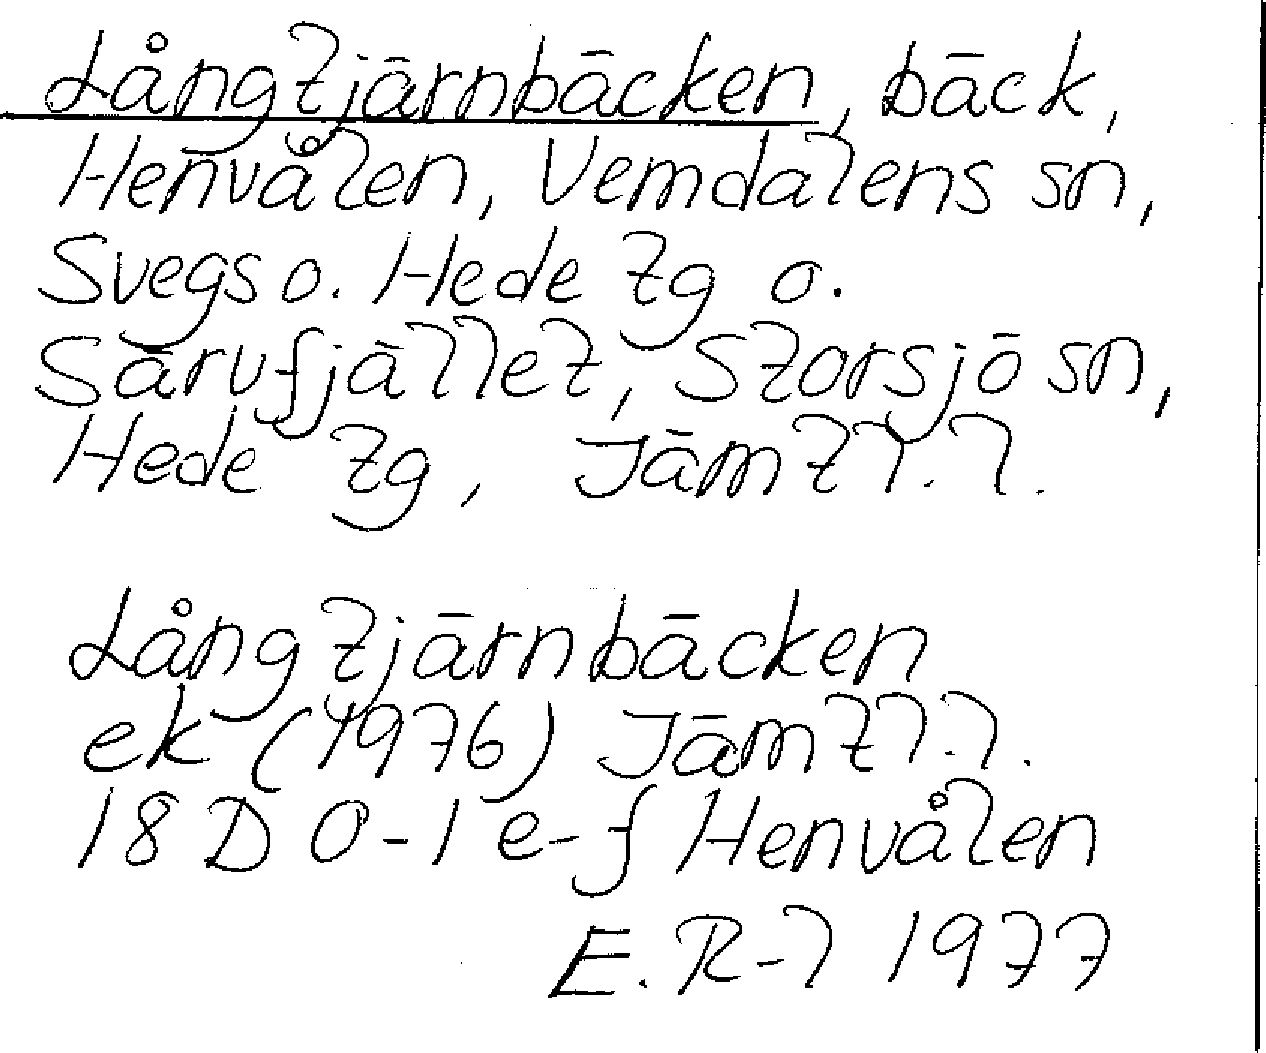 Långtjärnbäcken, bäck,
Henvålen, Vemdalens sn,
Svegs o. Hede tg o.
Särvfjället, Storsjö sn,
Hede tg, Jämtl. l.
Långtjärnbäcken
ek (1976) Jämtl. l.
18 D 0-1 e-f Henvålen
E. R-l 1977